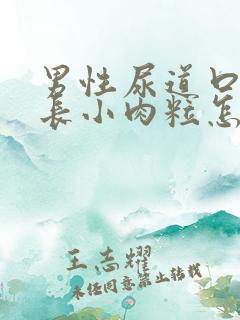 男性尿道口
长小肉粒怎
王志耀
未经同意禁止转载